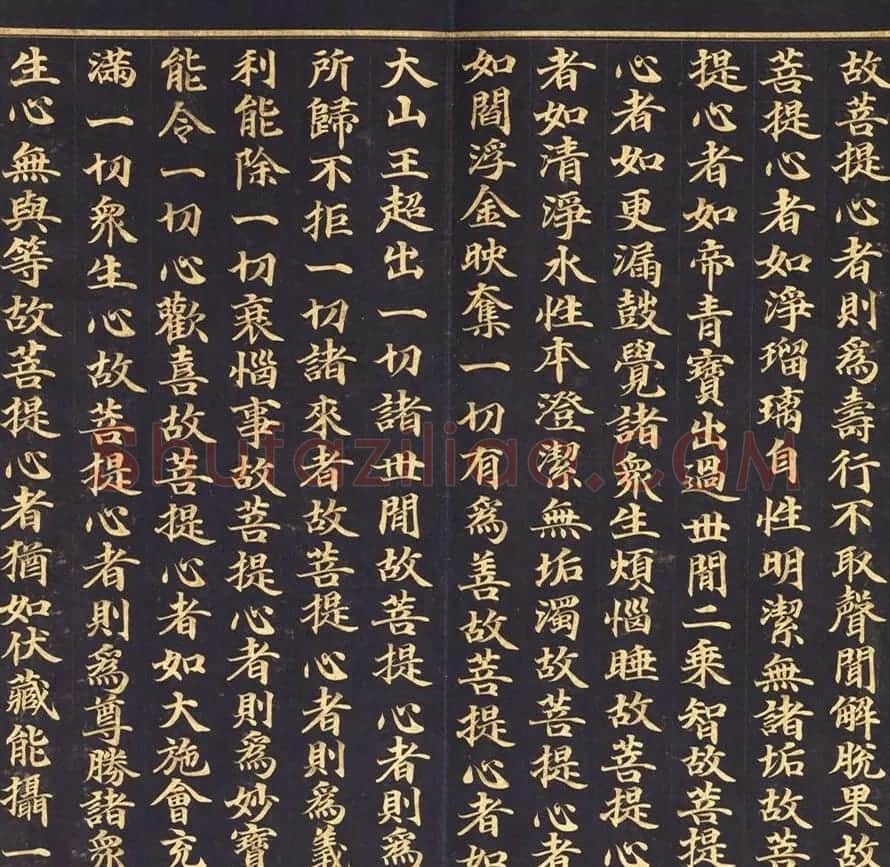 故菩提心者則爲壽行不取聲聞解脫果故
菩提心者如淨瑠璃自性明潔無諸垢故菩
提心者如帝青寶出過世間二乘智故菩提
心者如更漏鼓覺諸衆生煩惱睡故菩提心
者如清淨水性本澄潔無垢濁故菩提心者
如閻浮金映奪一切有爲善故菩提心者如
大山王超出一切諸世間故菩提心者則爲
所歸不拒一切諸來者故菩提心者則爲義
利能除一切衰惱事故菩提心者則爲妙寶
能令一切心歡喜故菩提心者如大施會充
滿一切衆生心故菩提心者則爲尊勝諸衆
生心無與等故菩提心者猶如伏藏能攝一
Shufaziliao.COM